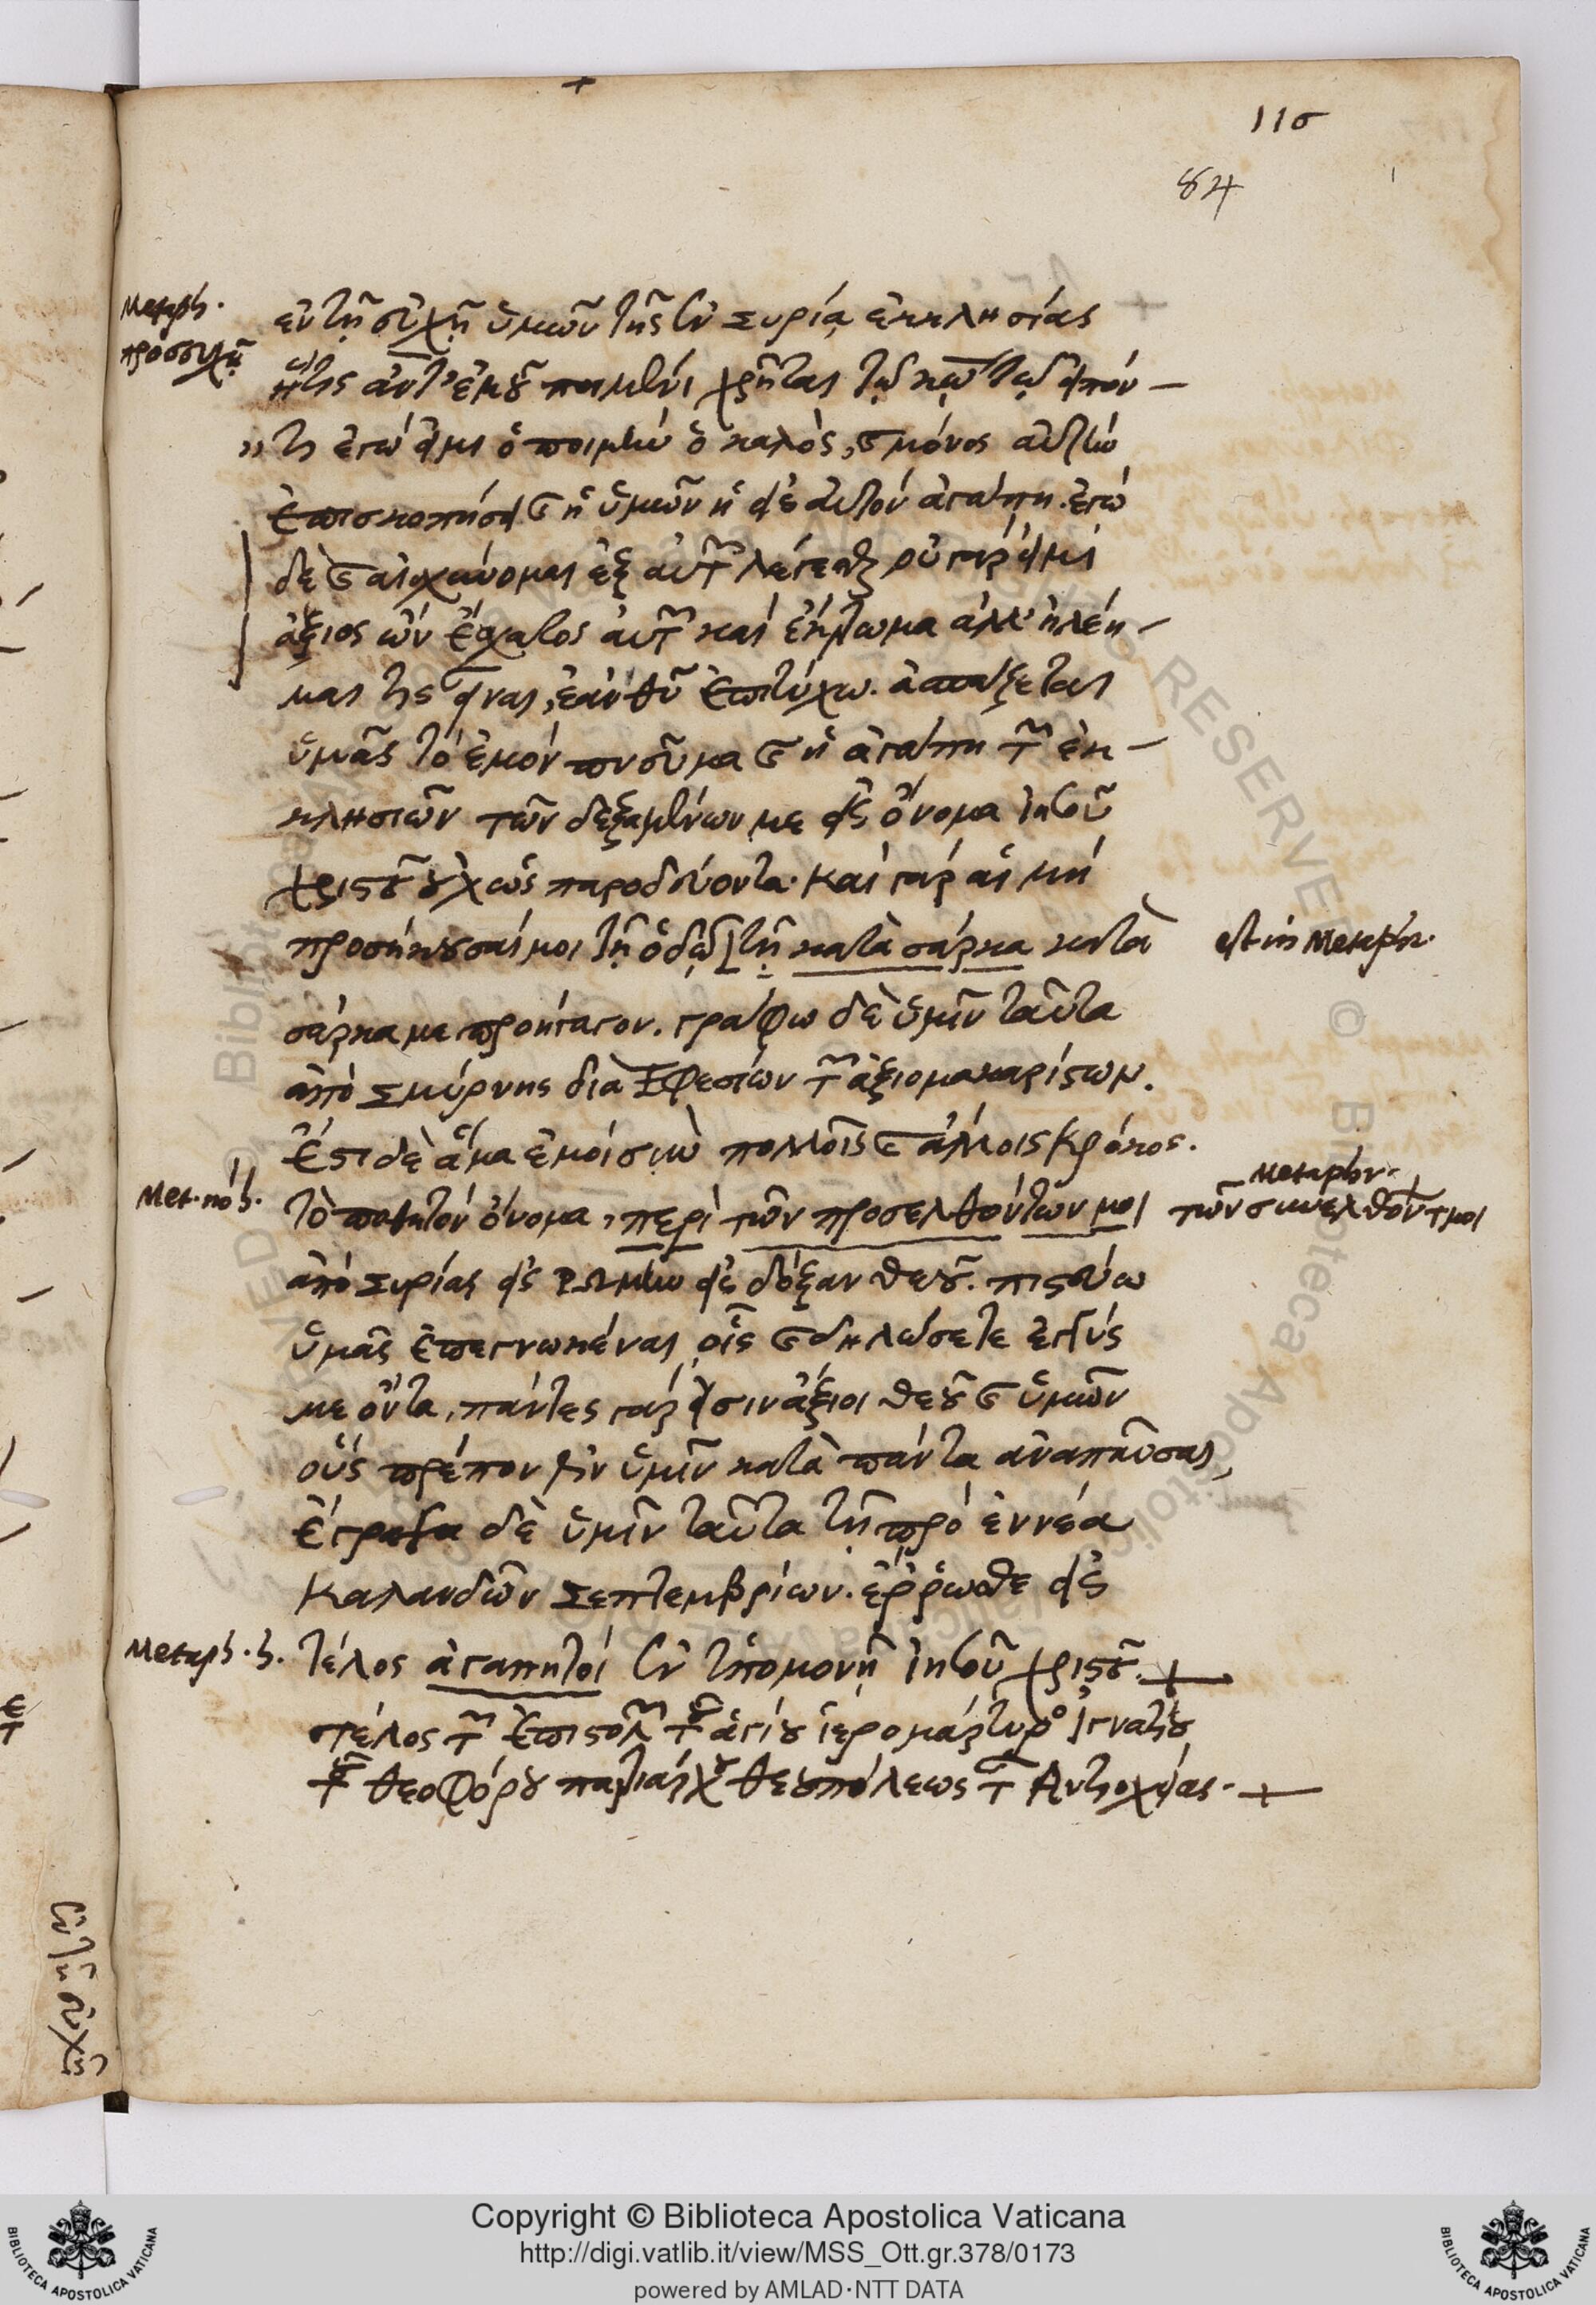 116
84
Metaph.
προσευχῇ
ἐν τῇ εὐχῇ ὑμῶν τῆς ἐν Συρίᾳ ἐκκλησίας
ἥτις ἀντ' ἐμοῦ ποιμένι χρῆται τῷ κῳ τῷ εἰπόν-
τι ἐγώ εἰμι ὁ ποιμὴν ὁ καλὸς, καὶ μόνος αὐτὴν
ἐπισκοπήσει καὶ ἡ ὑμῶν ἡ εἰς αὐτὸν ἀγάπη. ἐγὼ
δὲ καὶ αἰσχύνομαι ἐξ αὐτῶν λέγεσθαι οὐ γάρ εἰμι
ἄξιος ὢν ἔσχατος αὐτῶν καὶ ἔκτρωμα ἀλλ' ἠλέη-
μαι τὶς εἶναι, ἐὰν θῦ ἐπιτύχω. ἀσπάζεται
ὑμᾶς τὸ ἐμὸν πνεῦμα καὶ ἡ ἀγάπη τῶν ἐκ-
κλησιῶν τῶν δεξαμένων με εἰς ὄνομα ἰησοῦ
χριστοῦ οὐχ ὡς παροδεύοντα. καὶ γὰρ αἱ μὴ
προσήκουσαί μοι τῇ ὁδῷ [τῇ κατὰ σάρκα κατὰ
est in Metaphr.
σάρκα με προήγαγον. γράφω δὲ ὑμῖν ταῦτα
ἀπὸ Σμύρνης διὰ Ἐφεσίων τῶν ἀξιομακαρίστων.
ἔστι δὲ ἅμα ἐμοὶ σὺν πολλοῖς καὶ ἄλλοις Κρόκος.
τὸ ποθητὸν ὄνομα, περὶ τῶν προσελθόντων μοι
Metaphr.
τῶν συνελθόντ μοι
ἀπὸ Συρίας εἰς Ῥώμην εἰς δόξαν θεοῦ. πιστεύω
ὑμᾶς ἐπεγνωκέναι οἷς καὶ δηλώσετε ἐγγύς
με ὄντα, πάντες γάρ εἰσιν ἄξιοι θεοῦ καὶ ὑμῶν
οὓς πρέπον ἐστὶν ὑμῖν κατὰ πάντα ἀναπαῦσαι,
ἔγραψα δὲ ὑμῖν ταῦτα τῇ πρὸ ἐννέα
καλανδῶν Σεπτεμβρίων. ἔρρωσθε εἰς
τέλος ἀγαπητοί ἐν ὑπομονῇ ἰησοῦ χριστοῦ. +
τέλος τῶν ἐπιστολῶν τοῦ ἁγίου ἱερομάρτυρος Ἰγνατίου
τοῦ θεοφόρου πατριάρχου θεουπόλεως τῆς Ἀντιοχείας. +
ἐν τῇ εὐχῇ
Copyright © Biblioteca Apostolica Vaticana
http://digi.vatlib.it/view/MSS_Ott.gr.378/0173
powered by AMLAD·NTT DATA
BIBLIOTECA APOSTOLICA VATICANA
BIBLIOTECA APOSTOLICA VATICANA